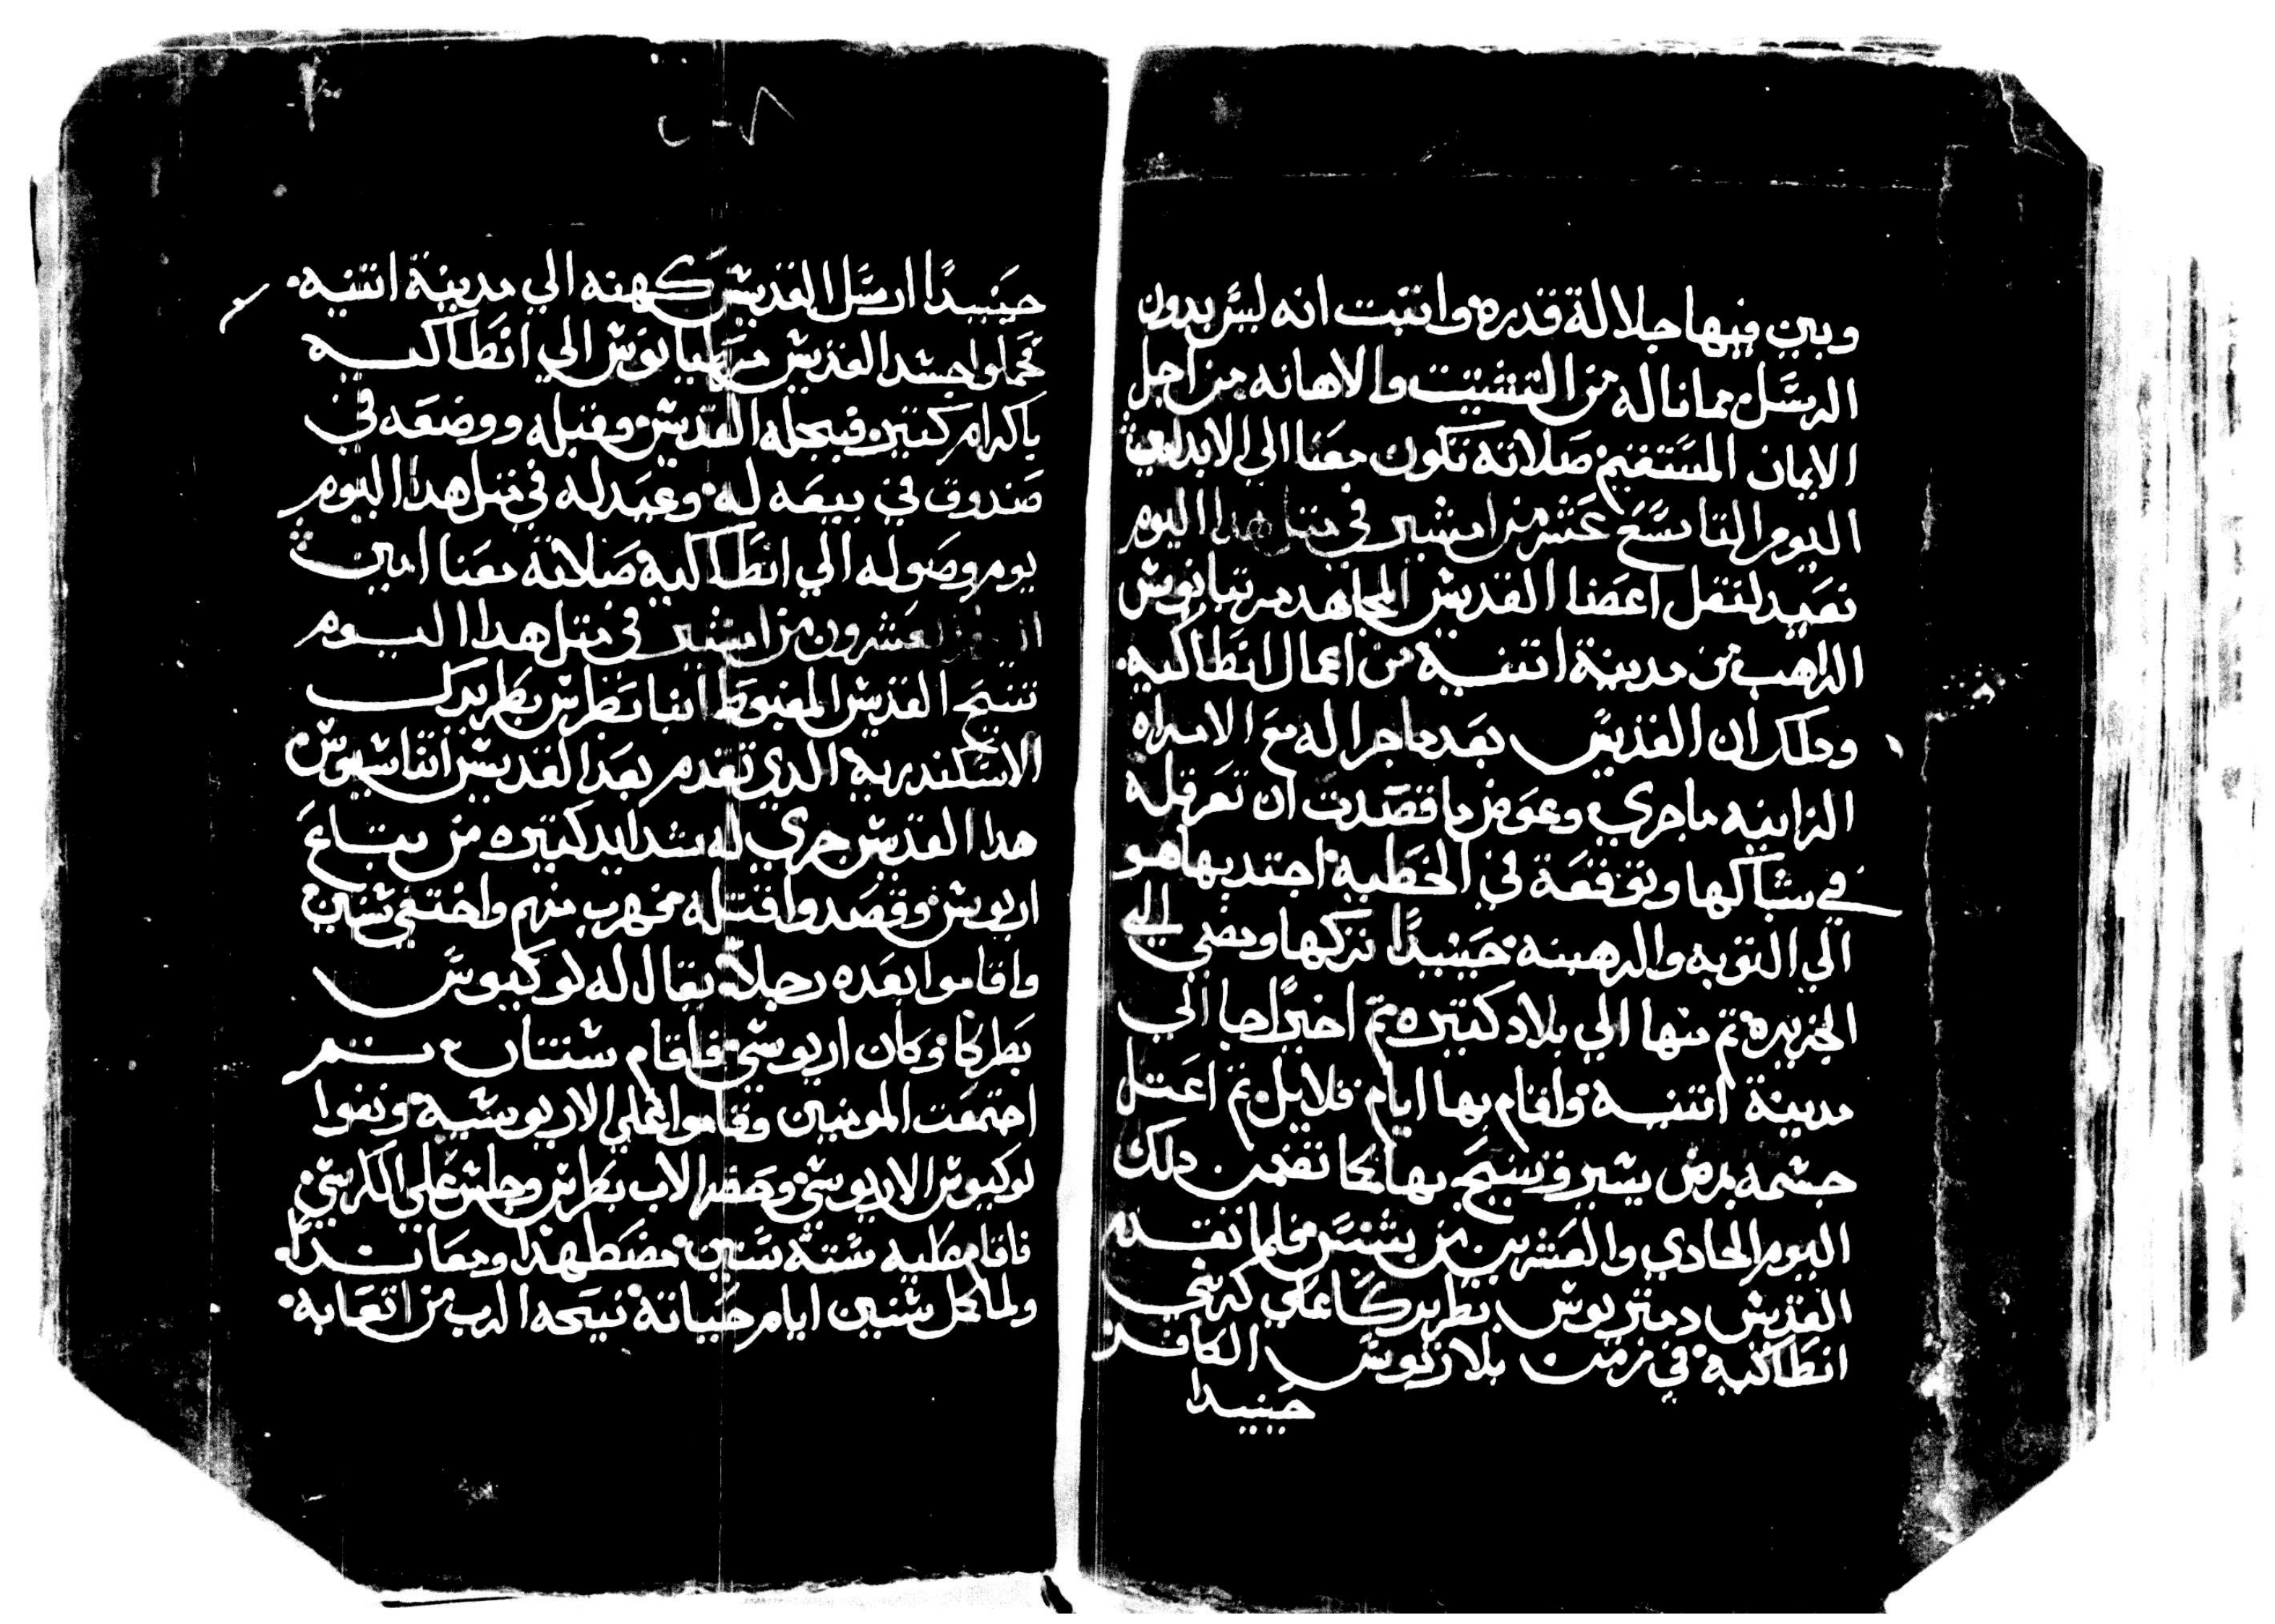 وبين فيها جلالة قدره واتبت انه ليس بدون
الرسل مما ناله من التشتيت والاهانه من اجل
الايمان المستقيم صلاته تكون معنا الي الابد امين
اليوم التاسع عشر من امشير في متل هدا اليوم
نعيد لنقل اعضا القديس المجاهد مرتيانوس
الراهب من مدينة اتنيه من اعمال انطاكيه
ودلك ان القديس بعد ما جرا له مع الامراه
الزانيه ما جري وعوض ما قصدت ان تعرقله
في شباكها وتوقعة في الخطية اجتدبها هو
الي التوبه والرهبنة حينيدًا تركها ومضي الي
الجزيره تم منها الي بلاد كتيره تم اخيرًا جا الي
مدينة اتنيه واقام بها ايام قلايل تم اعتل
جسمه بمرض يسير وتنيح بها كما تضمن دلك
اليوم الحادي والعشرين من بشنس فلما تقدم
القديس دمتريوس بطريركًا علي كرسي
انطاكية في زمن بلاريوس الكافر
حينيدا
٢٠٨
حينيدًا ارسل القديس كهنه الي مدينة اتنيه
فحملوا جسد القديس مرتيانوس الي انطاكيه
باكرام كتير فبجله القديس وقبله ووضعه في
صندوق في بيعه له وعيد له في متل هدا اليوم
يوم وصوله الي انطاكية صلاتة معنا امين
العشرون من امشير في متل هدا اليوم
تنيح القديس المغبوط انبا بطرس بطريرك
الاسكندرية الدي تقدم بعد القديس اتناسيوس
هدا القديس جري له شدايد كتيره من تباع
اريوس وقصدوا قتله فهرب منهم واختفي سنين
واقاموا بعده رجلاً يقال له لوكيوس
بطركا وكان اريوسي فاقام سنتان تم
اجتمعت المومنين وقاموا علي الاريوسية ونفوا
لوكيوس الاريوسي وحضر الاب بطرس وجلس علي الكرسي
فاقام عليه سته سنين مضطهدا ومعاندا
ولما كمل سنين ايام حياتة نيحه الرب من اتعابة